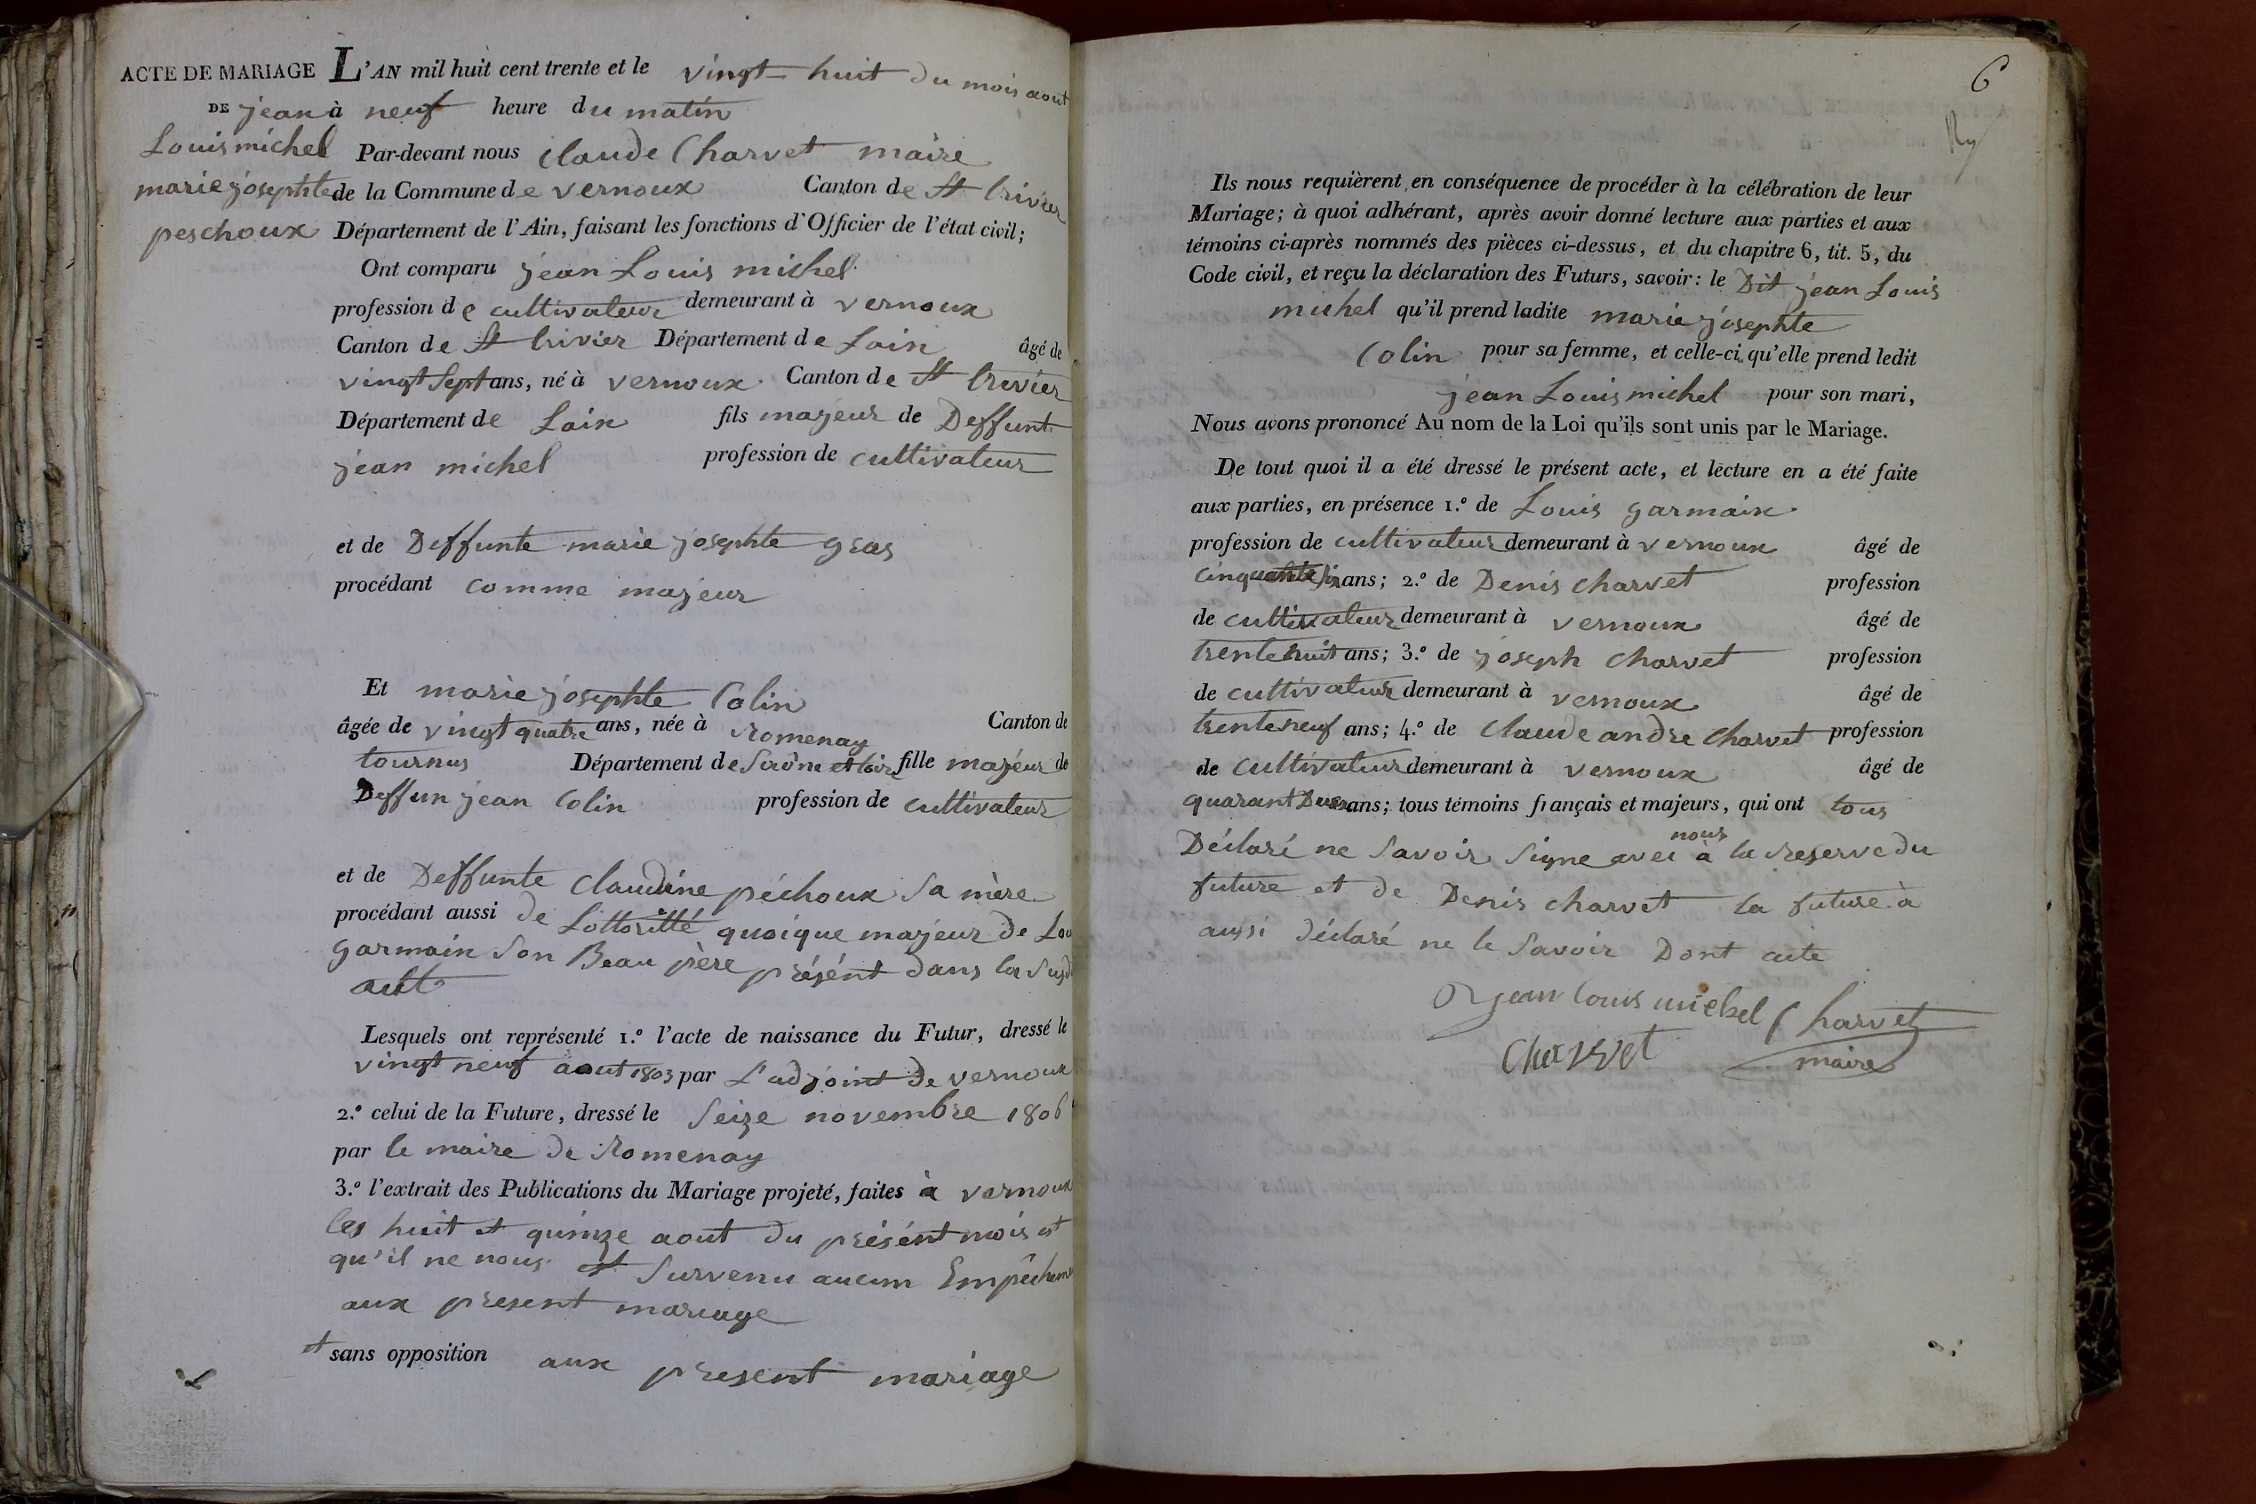 ACTE DE MARIAGE
DE jean
Louis michel
marie josephte
peschoux
L'AN mil huit cent trente et le vingt huit du mois aout
à neuf heure du matin
Par-devant nous Claude Charvet maire
de la Commune de vernoux Canton de St trivier
Département de l'Ain, faisant les fonctions d'Officier de l'état civil;
Ont comparu jean Louis michel
profession de cultivateur demeurant à vernoux
Canton de St trivier Département de Lain âgé de
vingt Sept ans, né à vernoux Canton de St trivier
Département de Lain fils majeur de Deffunt
jean michel profession de cultivateur
et de Deffunte marie josephte gras
procédant comme majeur
Et marie josephte Colin
âgée de vingt quatre ans, née à Romenay Canton de
tournus Département de Saône et loire fille majeur de
Deffun jean Colin profession de cultivateur
et de Deffunte Claudine péchoux Sa mère
procédant aussi de Lottoritté quoique majeur de Lou
garmain Son Beau père présént dans la Susd
act
Lesquels ont représenté 1.º l'acte de naissance du Futur, dressé le
vingt neuf aout 1803 par L'adjoint de vernoux
2.º celui de la Future, dressé le Seize novembre 1806
par le maire de Romenay
3.º l'extrait des Publications du Mariage projeté, faites à vernoux
les huit et quinze aout du présént mois et
qu'il ne nous est Survenu aucun Empêchem
aux present mariage
et sans opposition aux present mariage
6
Ils nous requièrent en conséquence de procéder à la célébration de leur
Mariage; à quoi adhérant, après avoir donné lecture aux parties et aux
témoins ci-après nommés des pièces ci-dessus, et du chapitre 6, tit. 5, du
Code civil, et reçu la déclaration des Futurs, savoir: le Dit jean Louis
michel qu'il prend ladite marie josephte
Colin pour sa femme, et celle-ci qu'elle prend ledit
jean Louis michel pour son mari,
Nous avons prononcé Au nom de la Loi qu'ils sont unis par le Mariage.
De tout quoi il a été dressé le présent acte, et lecture en a été faite
aux parties, en présence 1.º de Louis garmain
profession de cultivateur demeurant à vernoux âgé de
cinquante six ans; 2.º de Denis charvet profession
de cultivateur demeurant à vernoux âgé de
trente huit ans; 3.º de joseph charvet profession
de cultivateur demeurant à vernoux âgé de
trente neuf ans; 4.º de Claude andre Charvet profession
de cultivateur demeurant à vernoux âgé de
quarant Deux ans; tous témoins français et majeurs, qui ont tous
Déclaré ne Savoir Signe avec nous à la reserve du
future et de Denis charvet la future à
aussi déclaré ne le Savoir Dont acte
jean louis michel Charvet
Charvet maire